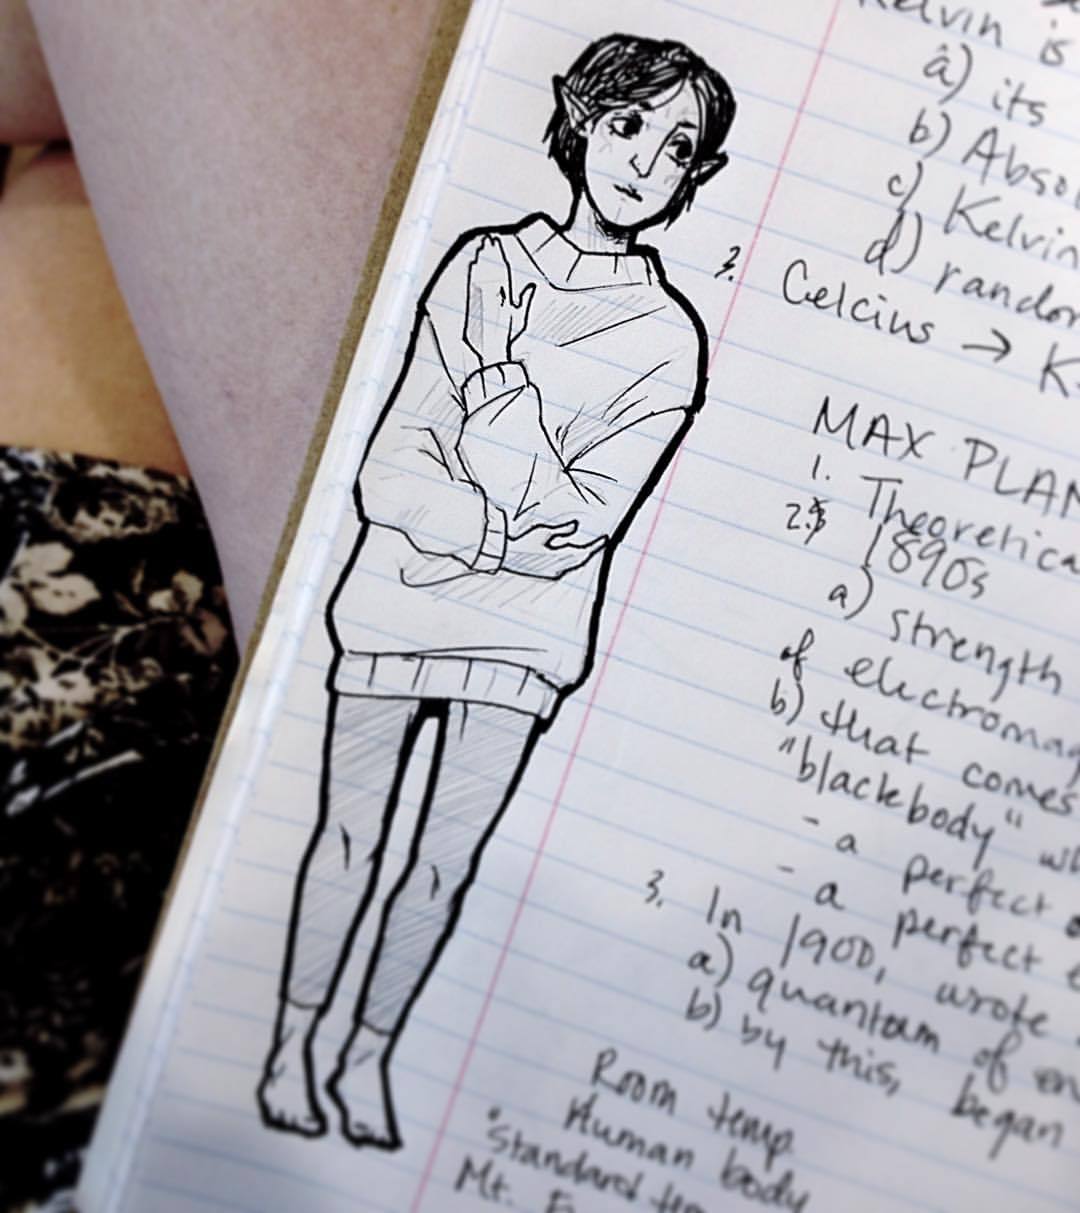 Kelvin is
a) its
b) Absol
c) Kelvin
d) random
3. Celcius → K
MAX PLAN
1. Theoretica
2. 1890s
a) strength
of electromag
b) that comes
"blackbody" wh
- a perfect
- a perfect
3. In 1900, wrote
a) quantum of en
b) by this, began
Room temp.
Human body
"Standard tem
Mt. E